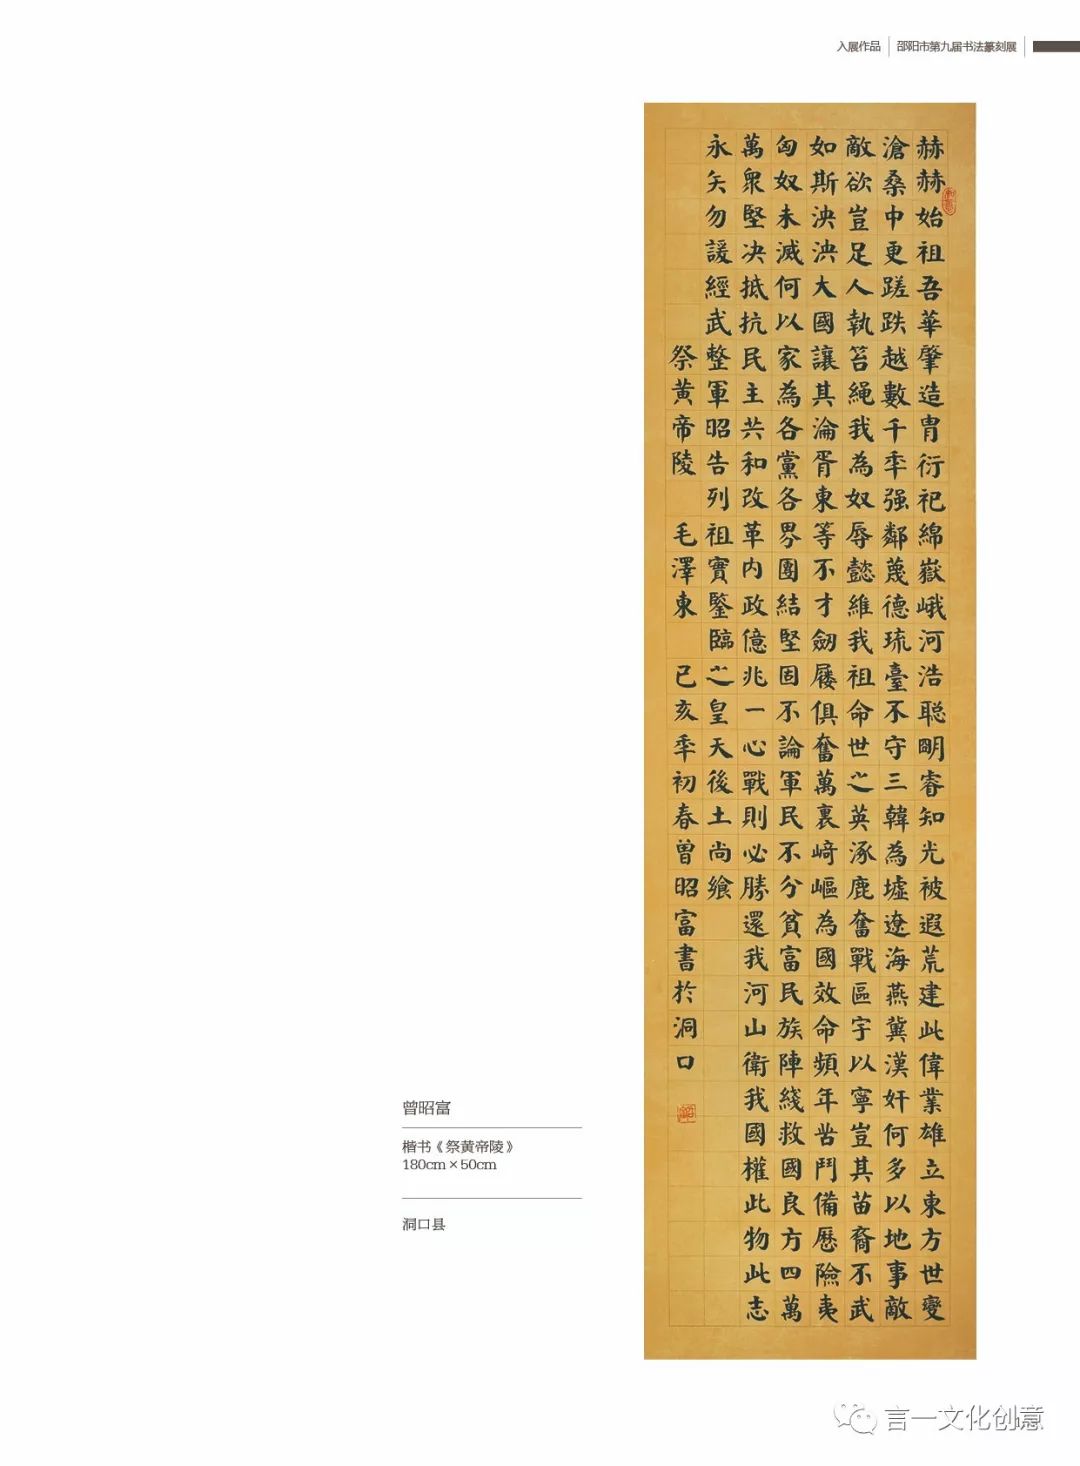 入展作品 邵阳市第九届书法篆刻展
赫赫始祖吾華肇造胄衍祀綿嶽峨河浩聪明睿知光被遐荒建此偉業雄立東方世變
滄桑中更蹉跌越數千年强鄰蔑德琉臺不守三韓為墟遼海燕冀漢奸何多以地事敵
敵欲豈足人執笞繩我為奴辱懿維我祖命世之英涿鹿奮戰區宇以寧豈其苗裔不武
如斯泱泱大國讓其淪胥東等不才劒屨俱奮萬裏崎嶇為國效命頻年苦鬥備歷險夷
匈奴未滅何以家為各黨各界團結堅固不論軍民不分貧富民族陣綫救國良方四萬
萬衆堅决抵抗民主共和改革内政億兆一心戰則必勝還我河山衛我國權此物此志
永矢勿諼經武整軍昭告列祖實鑒臨之皇天後土尚飨
祭黄帝陵 毛澤東 己亥年初春曾昭富書於洞口
曾昭富
楷书《祭黄帝陵》
180cm×50cm
洞口县
言一文化创意